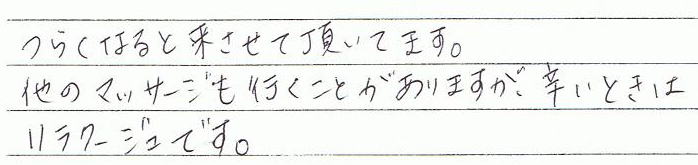 つらくなると来させて頂いてます。
他のマッサージも行くことがありますが、辛いときは
リラクージュです。